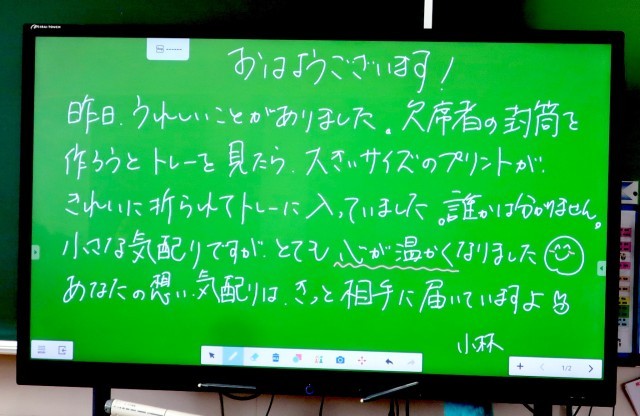 おはようございます!
昨日、うれしいことがありました。欠席者の封筒を
作ろうとトレーを見たら、大きいサイズのプリントが、
きれいに折られてトレーに入っていました。誰かは分かりません。
小さな気配りですが、とても心が温かくなりました
あなたの想い、気配りは、きっと相手に届いていますよ
小林
1/2